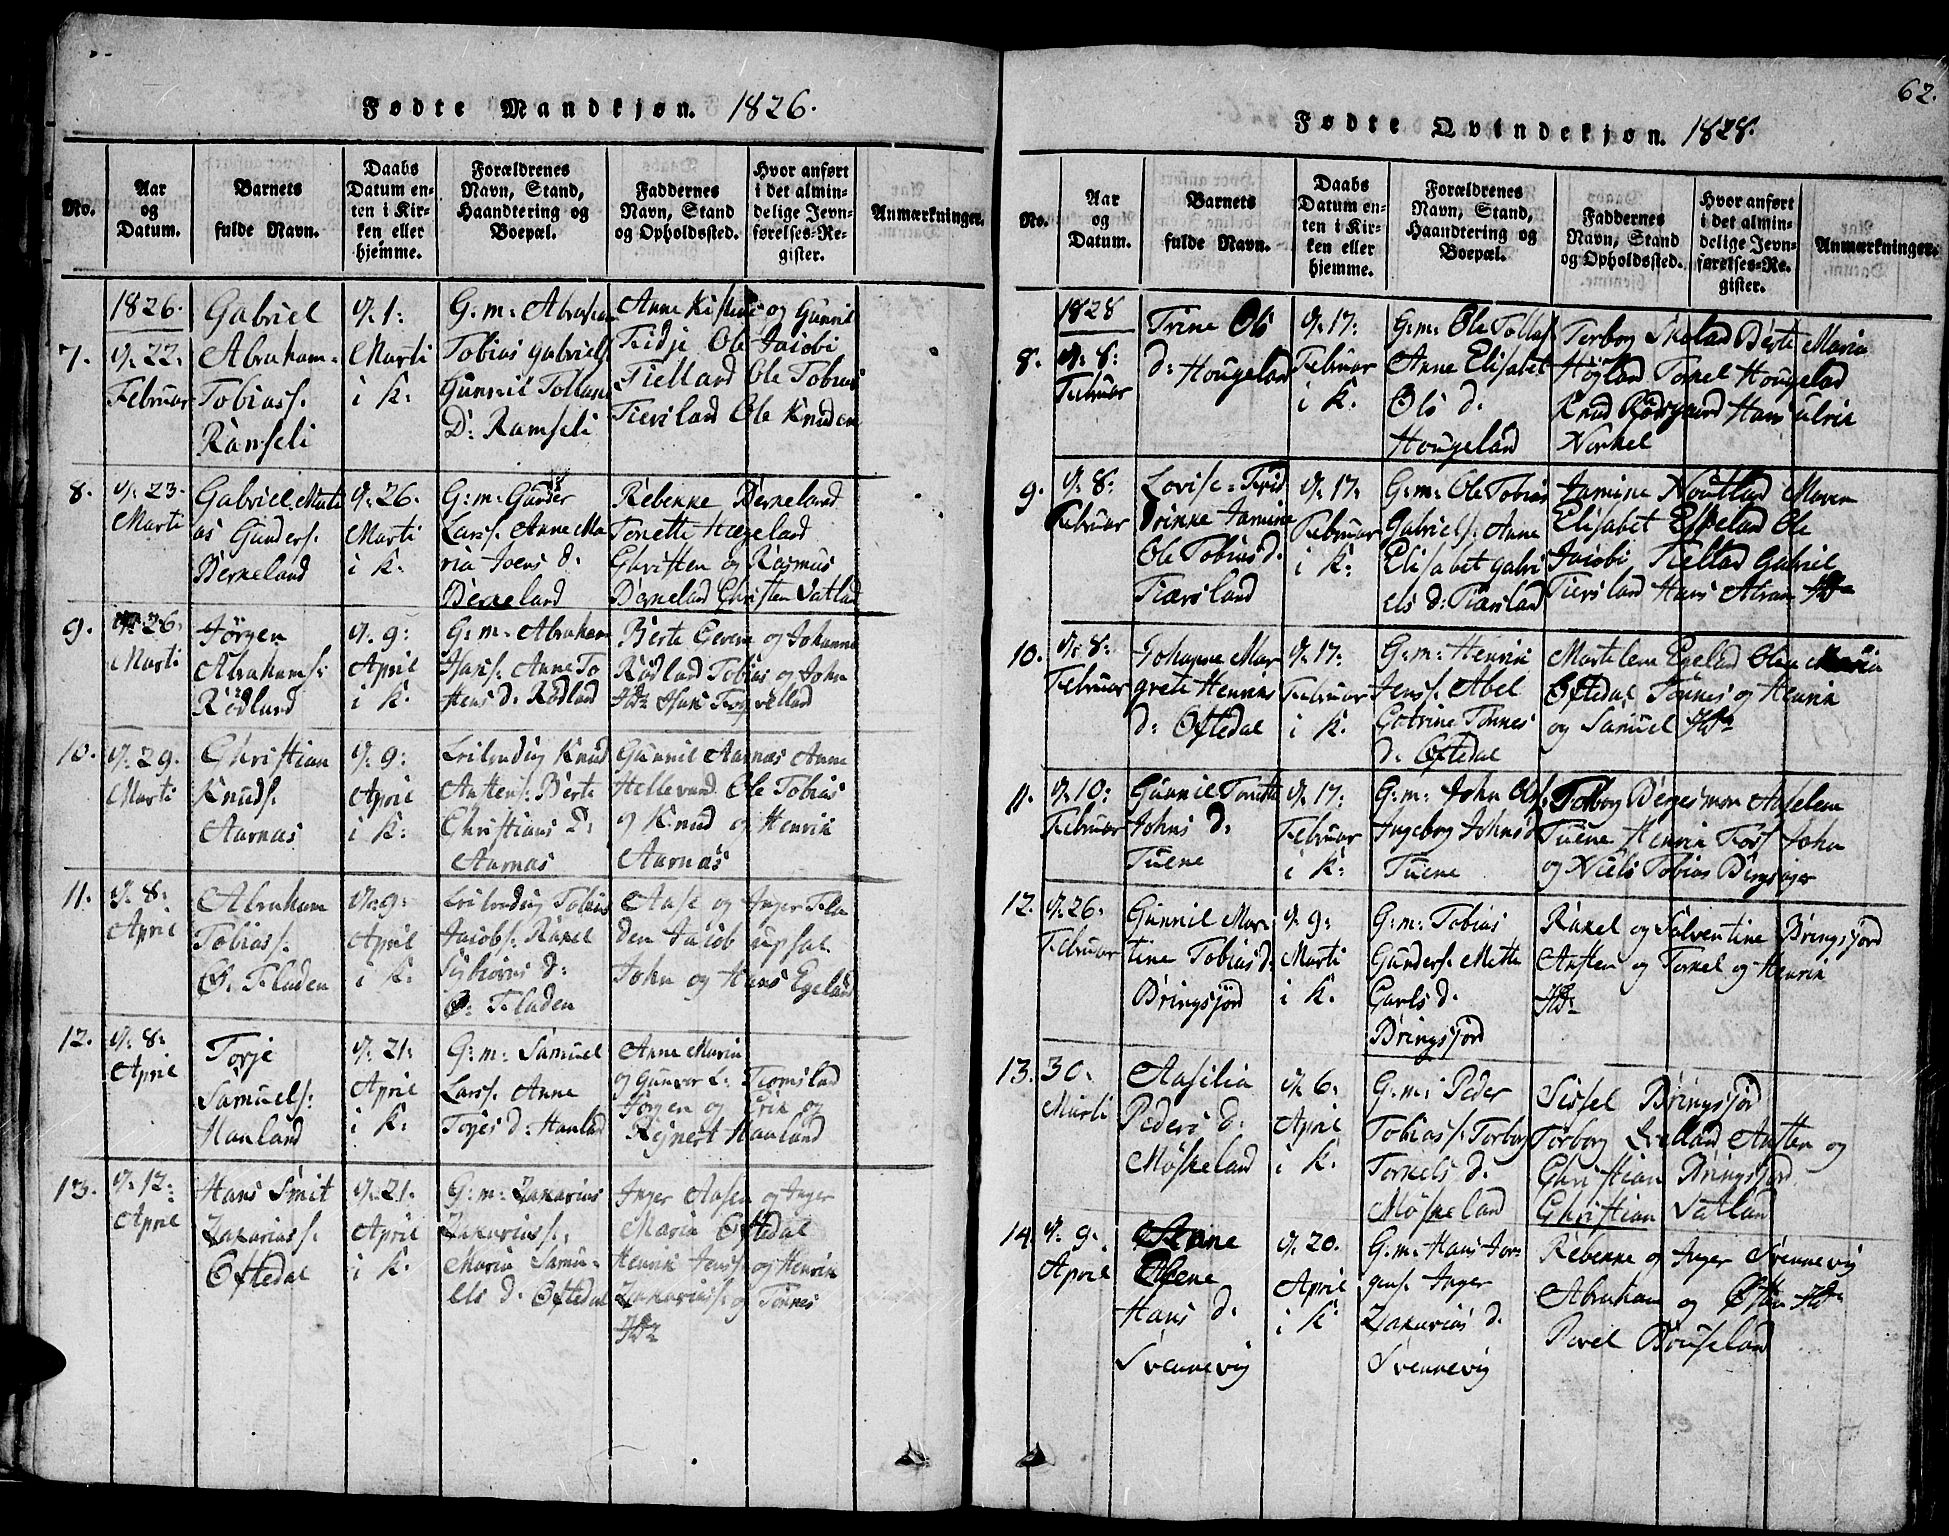 Fødte Mandkjøn. 1826.
No.
Aar
og
Datum.
Barnets
fulde Navn.
Daabs
Datum en-
ten i Kir-
ken eller
hjemme.
Forældrenes
Navn, Stand,
Haandtering og
Boepæl.
Faddernes
Navn, Stand
og Opholdssted.
Hvor anført
i det almin-
delige Jevn-
førelses-Re-
gister.
Anmærkninger.
1826.
7.
d. 22.
Februar
Gabriel
Abraham-
Tobiass.
Ramseli
d. 1:
Marti
i K.
G: m: Abraham
Tobias Gabriels
Gunnil Tollans
D: Ramseli
Anne Kistine og Gunnil
Fidje Ole Jacobi
Fielland Ole Tobias
Tiersland Ole Knudsen
8.
d. 23.
Marti
Gabriel Mati
as Gunders.
Berneland
d. 26.
Marti
i K.
G: m: Gunder
Larss. Anne Ma
ria Joens d:
Berneland
Rebenke Berneland
Tonette Hægeland
Christen og Rasmus
Berneland Christen Satland
9.
d. 26.
Marti
Jörgen
Abrahams:
Rödland
d. 9:
April
i K.
G: m: Abraham
Hans. Anne To
stens d: Rödland
Berte Gevene og Johanne
Rödland Tobias og John
10.
d. 29.
Marti
Christian
Knuds.
Aarnas
d. 9:
April
i K:
Leilending Knud
Austens: Berte
Christians D:
Aarnas
Gunnil Aarnas Anne
Hellevand Ole Tobias
og Knud og Henrik
Aarnas
11.
d. 8:
April
Abraham
Tobiass.
Ø: Fladen
d. 9:
April
i K:
Leilending Tobias
Jacobs: Rakel
d:
Ø: Fladen
Aase og Inger Fla
den Jacob upsal
John og Hans Egeland
12.
d. 8:
April
Torje
Samuels:
Hauland
d: 21:
April
i K:
G: m: Samuel
Larss. Anne
Tojes d: Hauland
Anne Maria
og Gunvor L: Tiomsland
Jörgen og Erik og
Rejnert Hauland
13.
d. 12:
April
Hans Smit
Zakariass.
Oftedal
d. 21.
April
i K.
G: m: Zakarias
Zakariass.
Maria Samu-
els d: Oftedal
Inger Aasen og Inger
Maria Oftedal
Henrik Jenss og Henrik
Zakariass. og Tönnes
62.
Fødte Qvindekjøn. 1828.
No.
Aar
og
Datum.
Barnets
fulde Navn.
Daabs
Datum en-
ten i Kir-
ken eller
hjemme.
Forældrenes
Navn, Stand,
Haandtering og
Boepæl.
Faddernes
Navn, Stand
og Opholdssted.
Hvor anført
i det almin-
delige Jevn-
førelses-Re-
gister.
Anmærkninger.
1828
8.
d. 8:
Februar
Trine Ols
d: Hougeland
d. 17:
Februar
i K.
G: m: Ole Tollafs
Anne Elisabet
Ols d.
Hougeland
Torborg Skeland Berte Maria
Högland Torkel Hougeland
Knud Rödsgaard Hans Ulrik
Norkel
9.
d. 8:
Februar
Lovise Frid
drikke Jamine
Ole Tobias d.
Tiærsland
d. 17:
Februar
i K:
G: m: Ole Tobias
Gabriels: Anne
Elisabet Gabri
els d: Tiærsland
Jamine Noutland Maren
Elisabet Eskeland Ole
Jacobi Fielland Gabriel
Tiersland Hans
10.
d. 8:
Februar
Johanne Mar
grete Henriks
d: Oftedal
d. 17:
Februar
i K.
G: m: Henrik
Jenss. Abel
Catrine Tönnes
d. Oftedal
Martilene Egeland
Oftedal Tönnes og Henrik
og Samuel
11.
d. 10:
Februar
Gunnil Tonette
Johns D:
Tuene
d. 17:
Februar
i K:
G: m: John Ols:
Ingeborg Johns d
Tuene
Torborg Bergesmon Aaselene
Tuene Henrik Foss John
og Niels Tobias
12.
d. 26.
Februar
Gunnil Mar-
tine Tobias d.
Bringsjord
d. 9:
Marti
i K.
G: m: Tobias
Gunders. Mette
Carls d.
Bringsjord
Rakel og Salventine Bringsjord
Austen og Torkel og Henrik
13.
30.
Marti
Aasilia
Peders d:
Møskeland
d. 6:
April
i K.
G: m: Peder
Tobiass: Torborg
Torkels d.
Møskeland
Sissel Bringsjord
Torborg Qvelland Austen og
Christian Bringsjord
Christian Satland
14.
d. 9.
April
Anne
Olene
Hans d:
Svennevig
d. 20.
April
i K
G: m: Hans Jör-
gens. Inger
Zakarias d.
Svennevig
Rebenke og Inger Svennevig
Abraham og
Pavel Bruseland